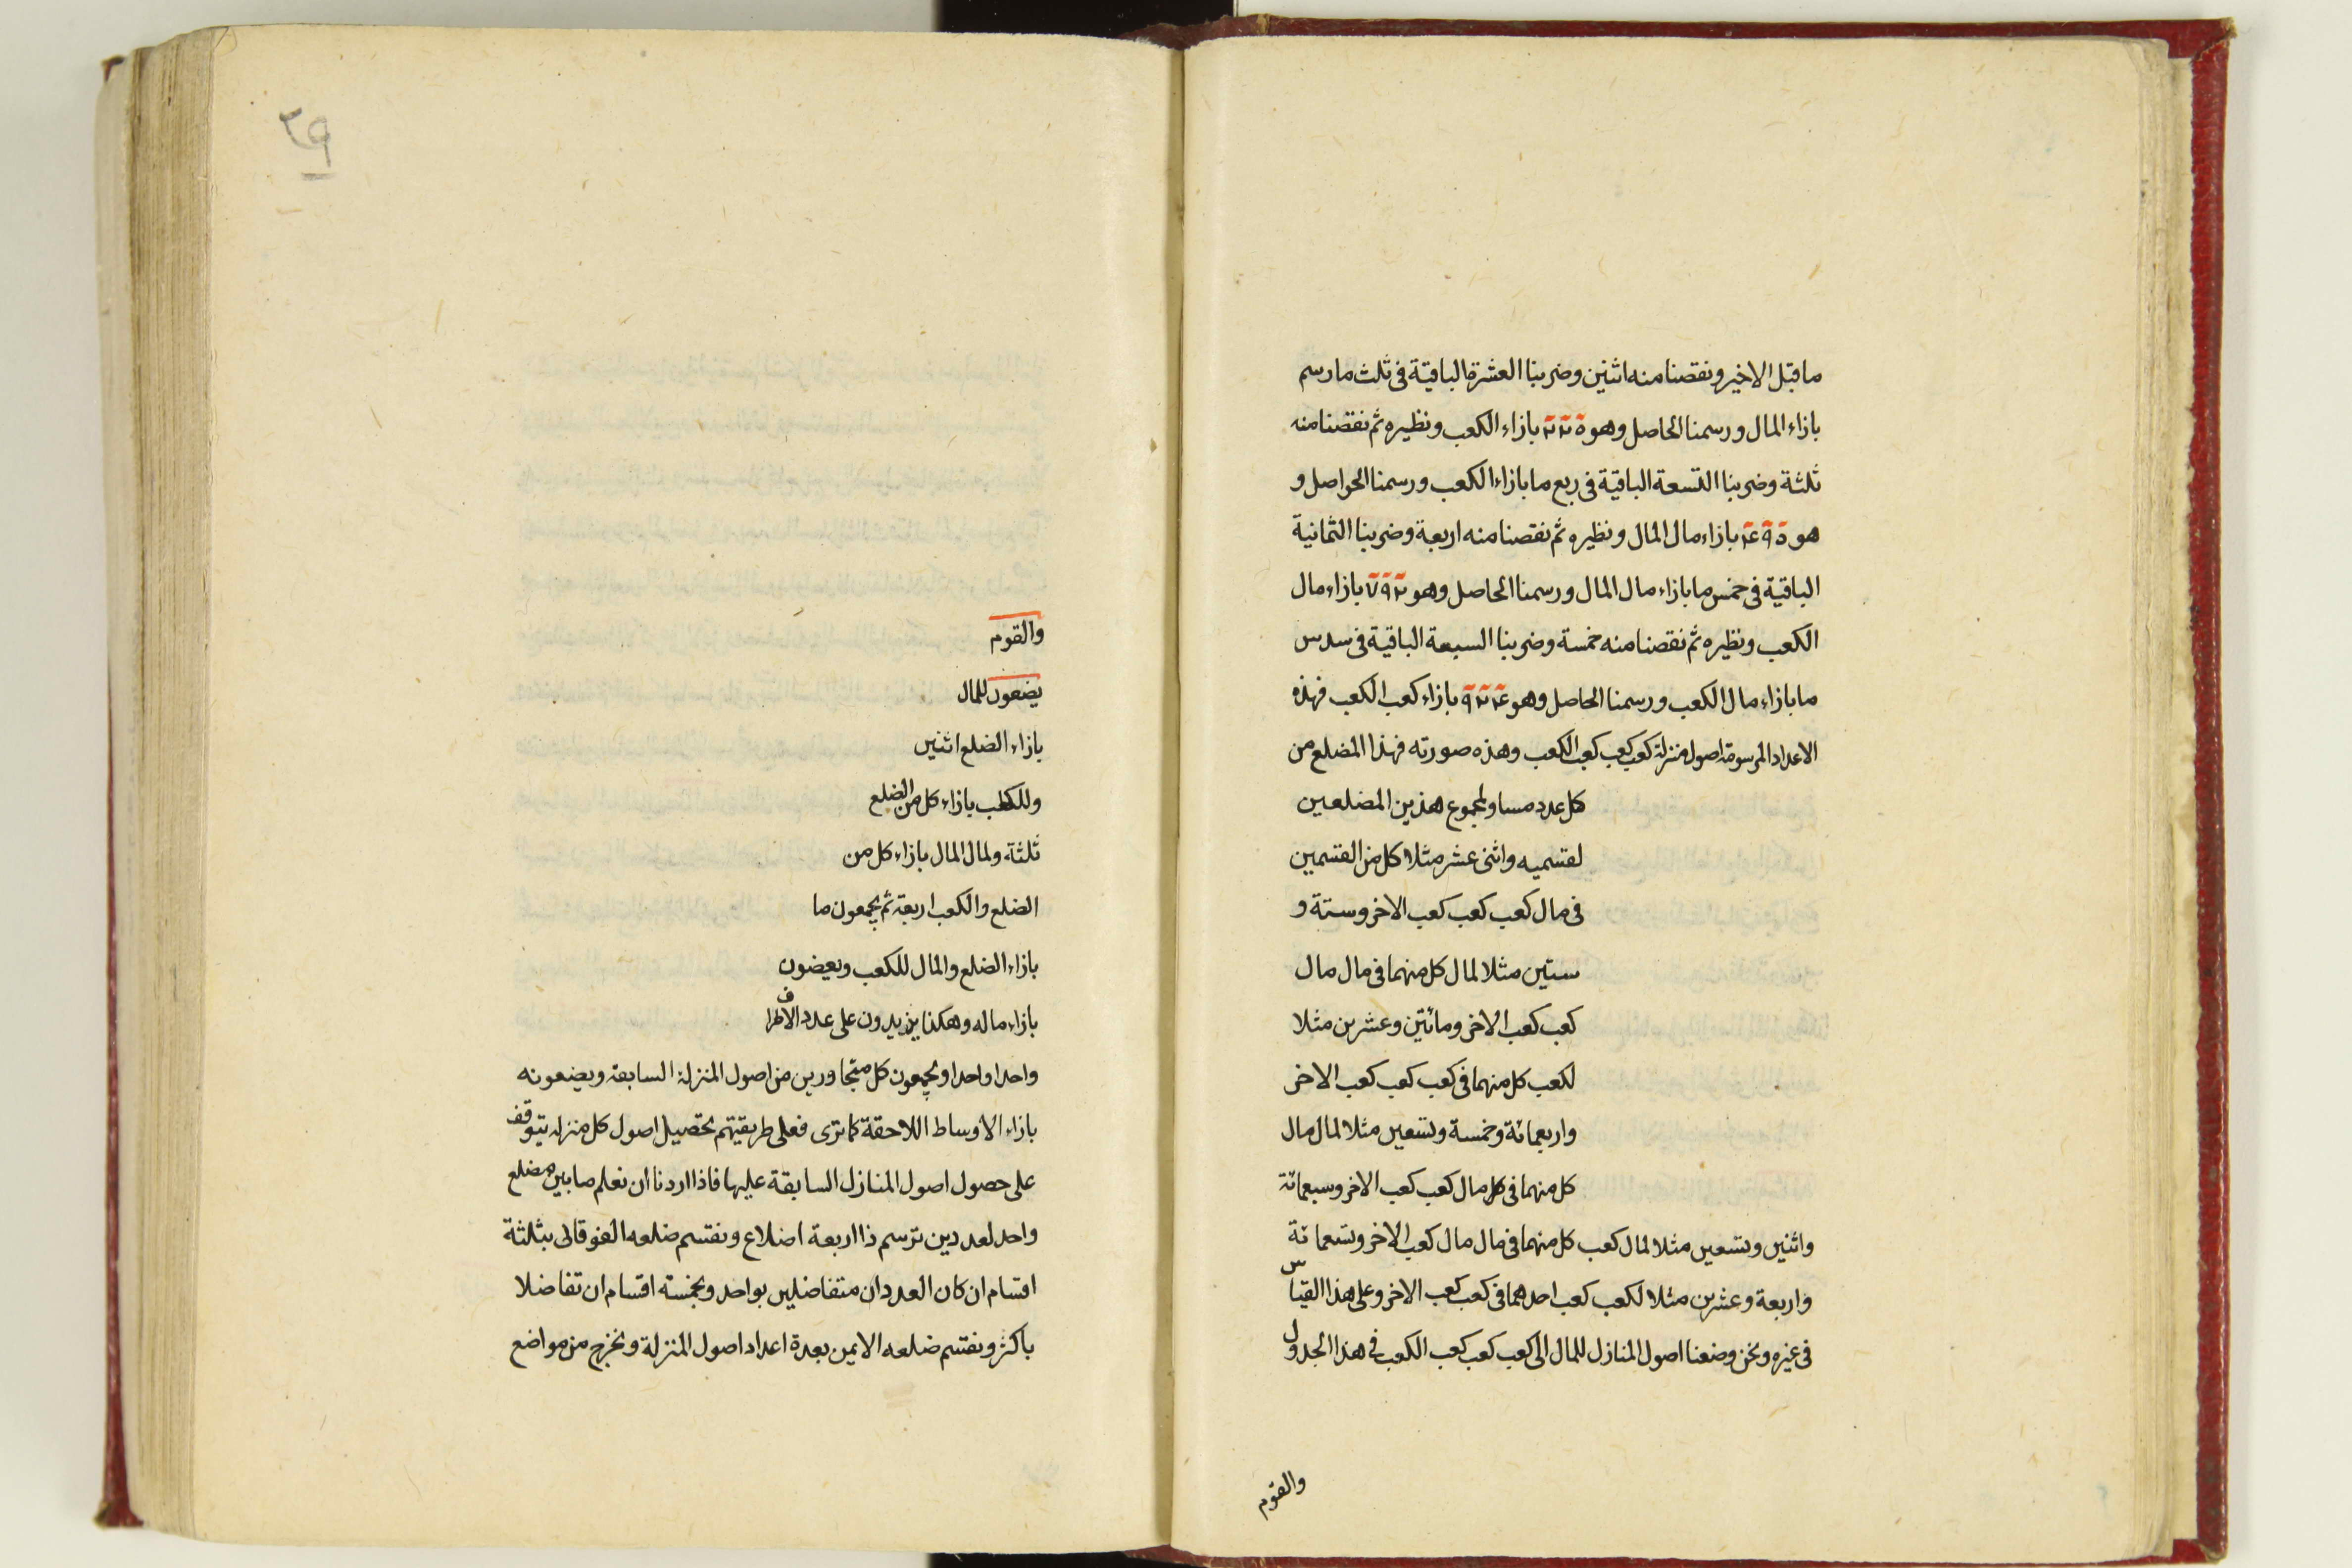 ما قبل الاخير ونقصنا منه اثنين وضربنا العشرة الباقية فى ثلث ما رسم
بازاء المال ورسمنا الحاصل وهو ٢٢٥ بازاء الكعب ونظيره ثم نقصنا منه
ثلثة وضربنا التسعة الباقية فى ربع ما بازاء الكعب ورسمنا الحواصل و
هو ٤٩٥ بازاء مال المال ونظيره ثم نقصنا منه اربعة وضربنا الثمانية
الباقية فى خمس ما بازاء مال المال ورسمنا الحاصل وهو ٧٩٢ بازاء مال
الكعب ونظيره ثم نقصنا منه خمسة وضربنا السبعة الباقية فى سدس
ما بازاء مال الكعب ورسمنا الحاصل وهو ٩٢٤ بازاء كعب الكعب فهذه
الاعداد المرسومة اصول منزلة كعب كعب كعب الكعب وهذه صورته فهذا المضلع من
كل عدد مساو لمجموع هذين المضلعين
لقسميه واثنى عشر مثلا كل من القسمين
فى مال كعب كعب كعب الاخر وستة و
ستين مثلا لمال كل منهما فى مال مال
كعب كعب الاخر ومائتين وعشرين مثلا
لكعب كل منهما فى كعب كعب كعب الاخر
واربعمائة وخمسة وتسعين مثلا لمال مال
كل منهما فى مال كعب كعب الاخر وسبعمائة
واثنين وتسعين مثلا لمال كعب كل منهما فى مال مال كعب الاخر وتسعمائة
واربعة وعشرين مثلا لكعب كعب احدهما فى كعب كعب الاخر وعلى هذا القياس
فى غيره ونحن وضعنا اصول المنازل للمال الى كعب كعب كعب الكعب فى هذا الجدول
والقوم
٢٩
والقوم
يضعون للمال
بازاء الضلع اثنين
وللكعب بازاء كل من الضلع
ثلثة ولمال المال بازاء كل من
الضلع والكعب اربعة ثم يجمعون ما
بازاء الضلع والمال للكعب ويضعون
بازاء ماله وهكذا يزيدون على عدد الاطراف
واحدا واحدا ويجمعون كل متجاورين من اصول المنزلة السابقة ويضعونه
بازاء الاوساط اللاحقة كما ترى فعلى طريقتهم تحصيل اصول كل منزلة يتوقف
على حصول اصول المنازل السابقة عليها فاذا اردنا ان نعلم ما بين مضلع
واحد لعددين نرسم ذا اربعة اضلاع ونقسم ضلعه الفوقانى بثلثة
اقسام ان كان العددان متفاضلين بواحد وبخمسة اقسام ان تفاضلا
باكثر ونقسم ضلعه الايمن بعدة اعداد اصول المنزلة ونخرج من مواضع